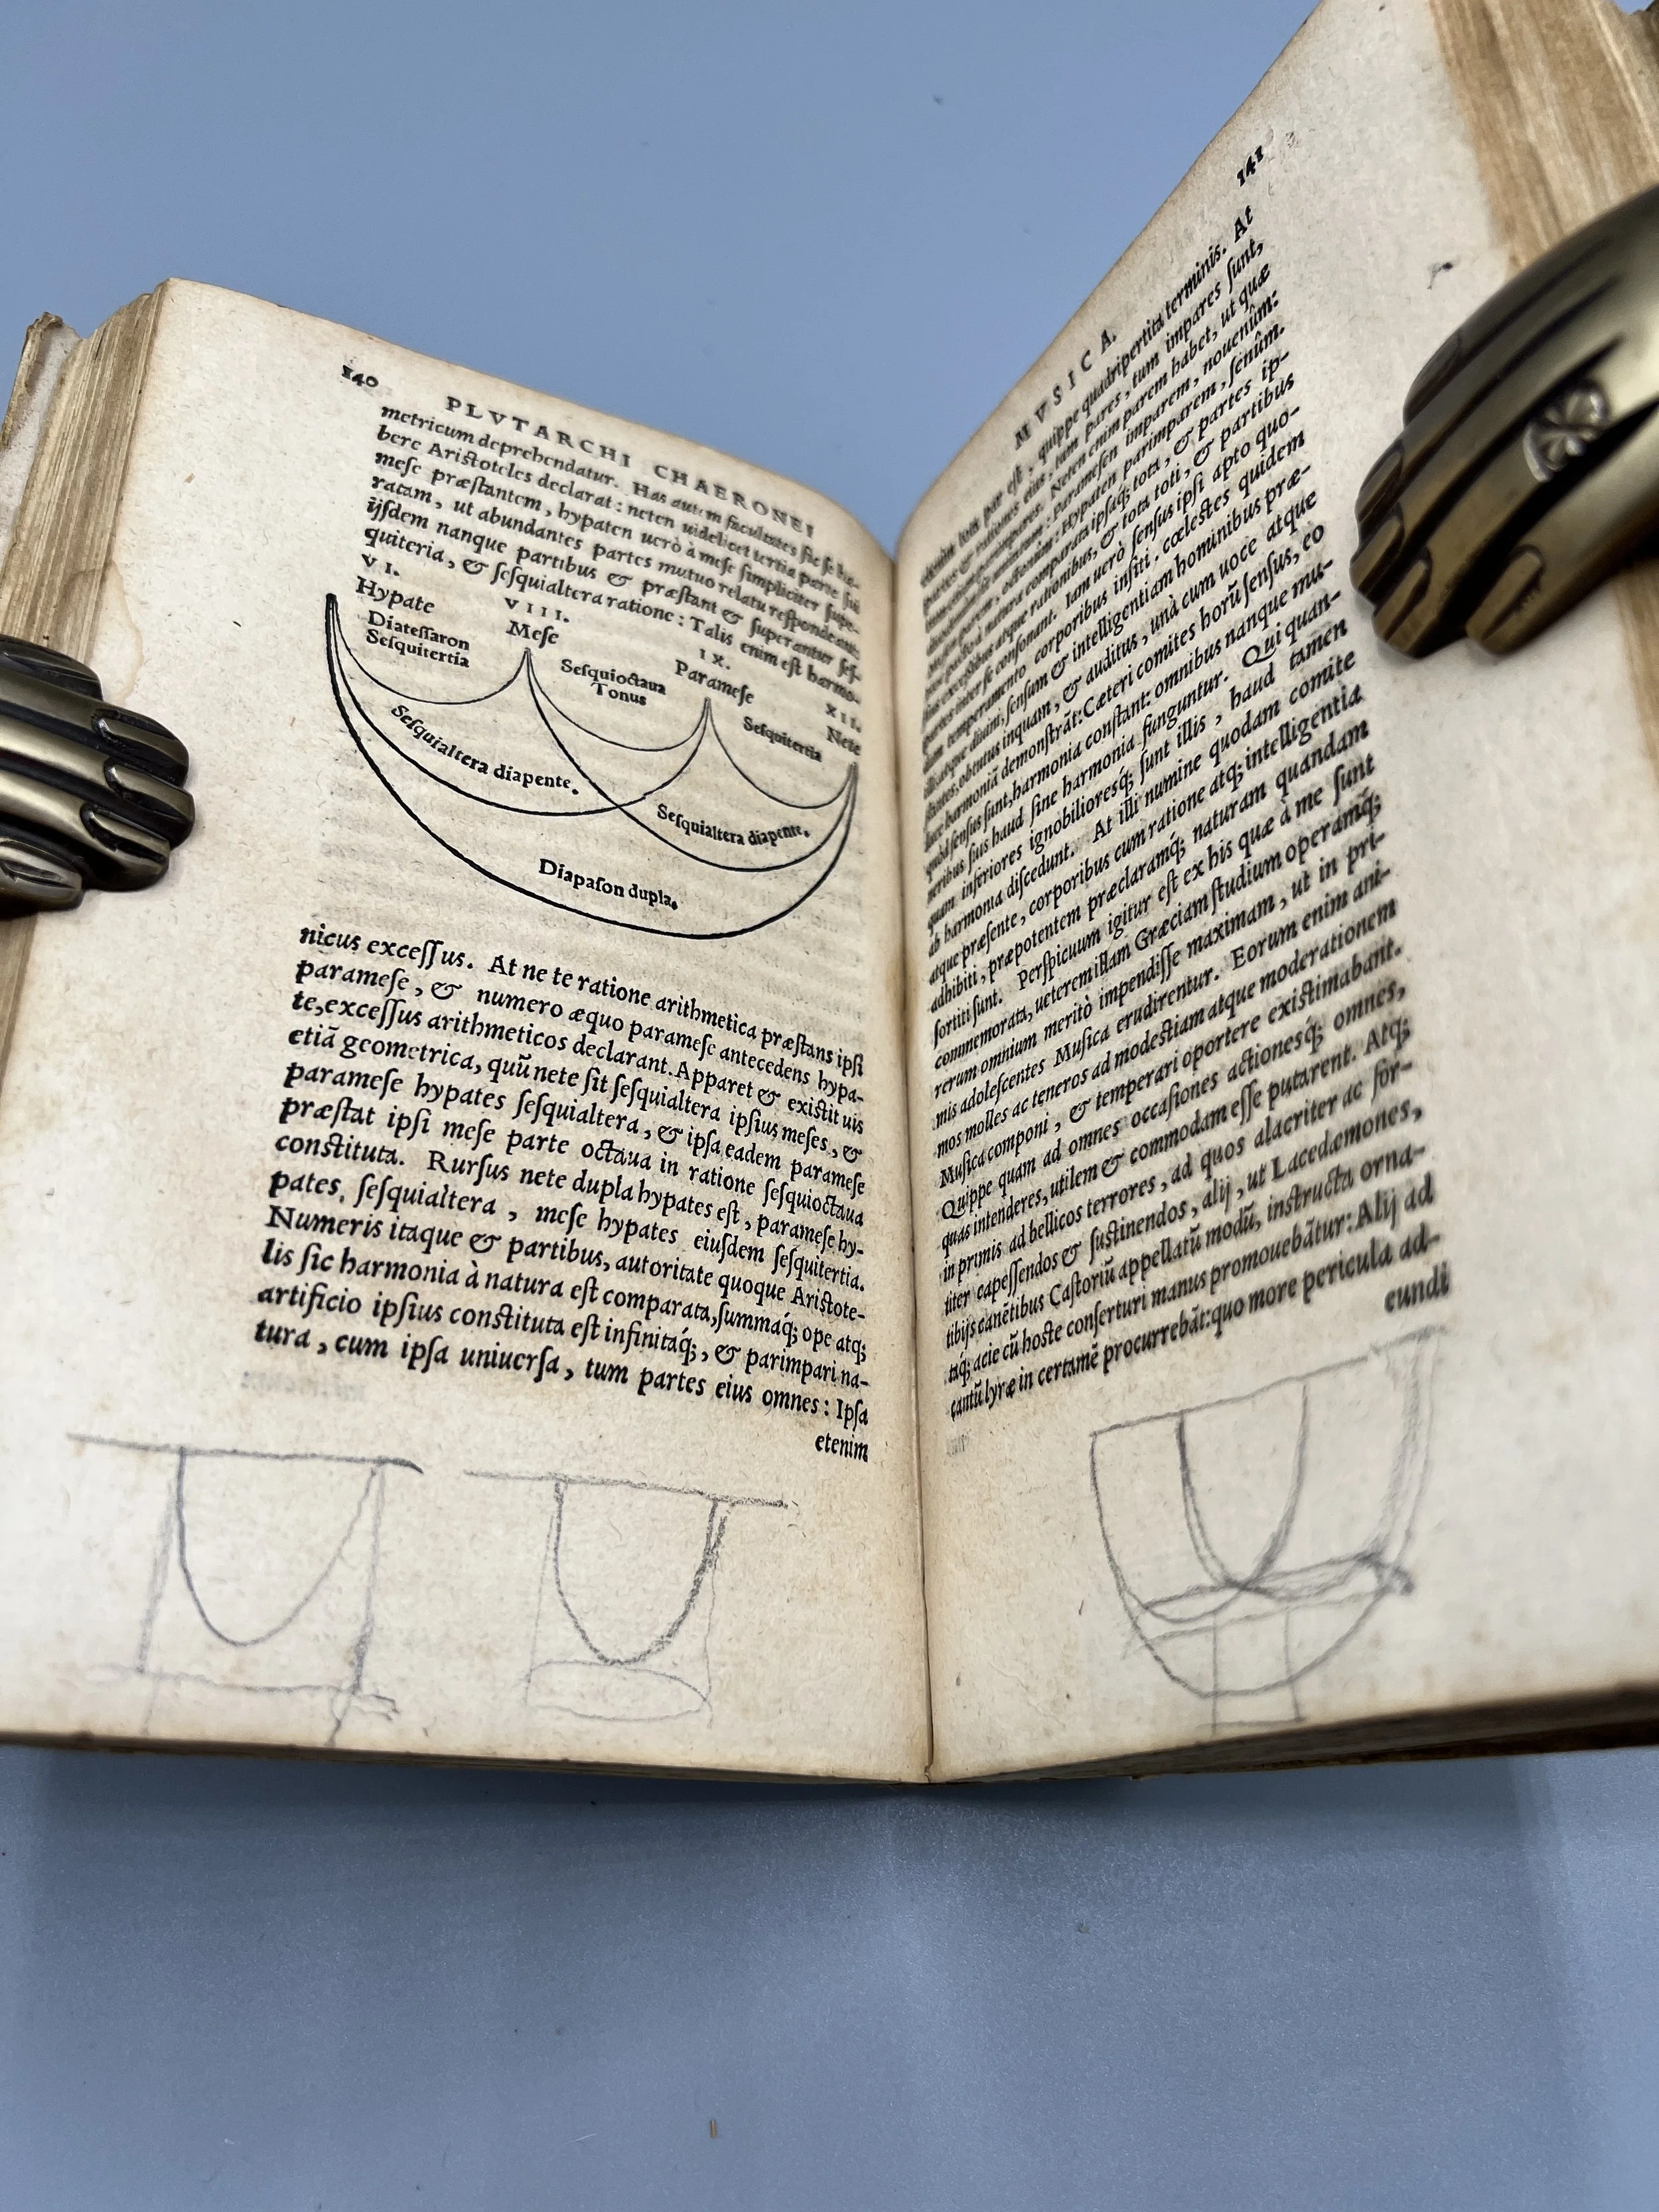 140
PLVTARCHI CHAERONEI
metricum deprehendatur. Has autem facultates sic se ha-
bere Aristoteles declarat: neten uidelicet tertia parte sui
mese præstantem, hypaten uerò à mese simpliciter supe-
ratam, ut abundantes partes mutuo relatu respondeant:
ijsdem nanque partibus & præstant & superantur ses-
quiteria, & sesquialtera ratione: Talis enim est harmo-
VI.
Hypate
VIII.
Mese
IX.
Paramese
XII.
Nete
Diatessaron
Sesquitertia
Sesquioctaua
Tonus
Sesquitertia
Sesquialtera diapente.
Sesquialtera diapente.
Diapason dupla.
nicus excessus. At ne te ratione arithmetica præstans ipsi
paramese, & numero æquo paramese antecedens hypa-
te, excessus arithmeticos declarant. Apparet & existit uis
etiā geometrica, quū nete sit sesquialtera ipsius meses, &
paramese hypates sesquialtera, & ipsa eadem paramese
præstat ipsi mese parte octaua in ratione sesquioctaua
constituta. Rursus nete dupla hypates est, paramese hy-
pates, sesquialtera, mese hypates eiusdem sesquitertia.
Numeris itaque & partibus, autoritate quoque Aristote-
lis sic harmonia à natura est comparata, summaq́; ope atq;
artificio ipsius constituta est infinitaq́;, & parimpari na-
tura, cum ipsa uniuersa, tum partes eius omnes: Ipsa
etenim
141
MVSICA.
etenim tota par est, quippe quadripertita terminis. At
partes & rationes eius, tum pares, tum impares sunt,
Neten enim parem habet, ut quæ
Paramesen imparem, nouenûm:
Hypaten parimparem, senûm.
natura comparata ipsaq́; tota, & partes ip-
excessibus atque rationibus, & tota toti, & partibus
partes inter se consonant. Iam uerò sensus ipsi apto quo-
dam temperamento corporibus insiti. cœlestes quidem
illi atque diuini, sensum & intelligentiam hominibus præ-
obtutus inquam, & auditus, unà cum uoce atque
luce harmoniā demonstrāt: Cæteri comites horū sensus, eo
quòd sensus sunt, harmonia constant: omnibus nanque mu-
neribus suis haud sine harmonia funguntur. Qui quan-
quam inferiores ignobilioresq́; sunt illis, haud tamen
ab harmonia discedunt. At illi numine quodam comite
atque præsente, corporibus cum ratione atq; intelligentia
adhibiti, præpotentem præclaramq́; naturam quandam
sortiti sunt. Perspicuum igitur est ex his quæ à me sunt
commemorata, ueterem illam Græciam studium operamq́;
rerum omnium meritò impendisse maximam, ut in pri-
mis adolescentes Musica erudirentur. Eorum enim ani-
mos molles ac teneros ad modestiam atque moderationem
Musica componi, & temperari oportere existimabant.
Quippe quam ad omnes occasiones actionesq́; omnes,
quas intenderes, utilem & commodam esse putarent. Atq;
in primis ad bellicos terrores, ad quos alacriter ac for-
titer capessendos & sustinendos, alij, ut Lacedæmones,
tibijs canētibus Castoriū appellatū modū, instructa orna-
taq́; acie cū hoste conserturi manus promouebātur: Alij ad
cantū lyræ in certamē procurrebāt: quo more pericula ad-
eundi